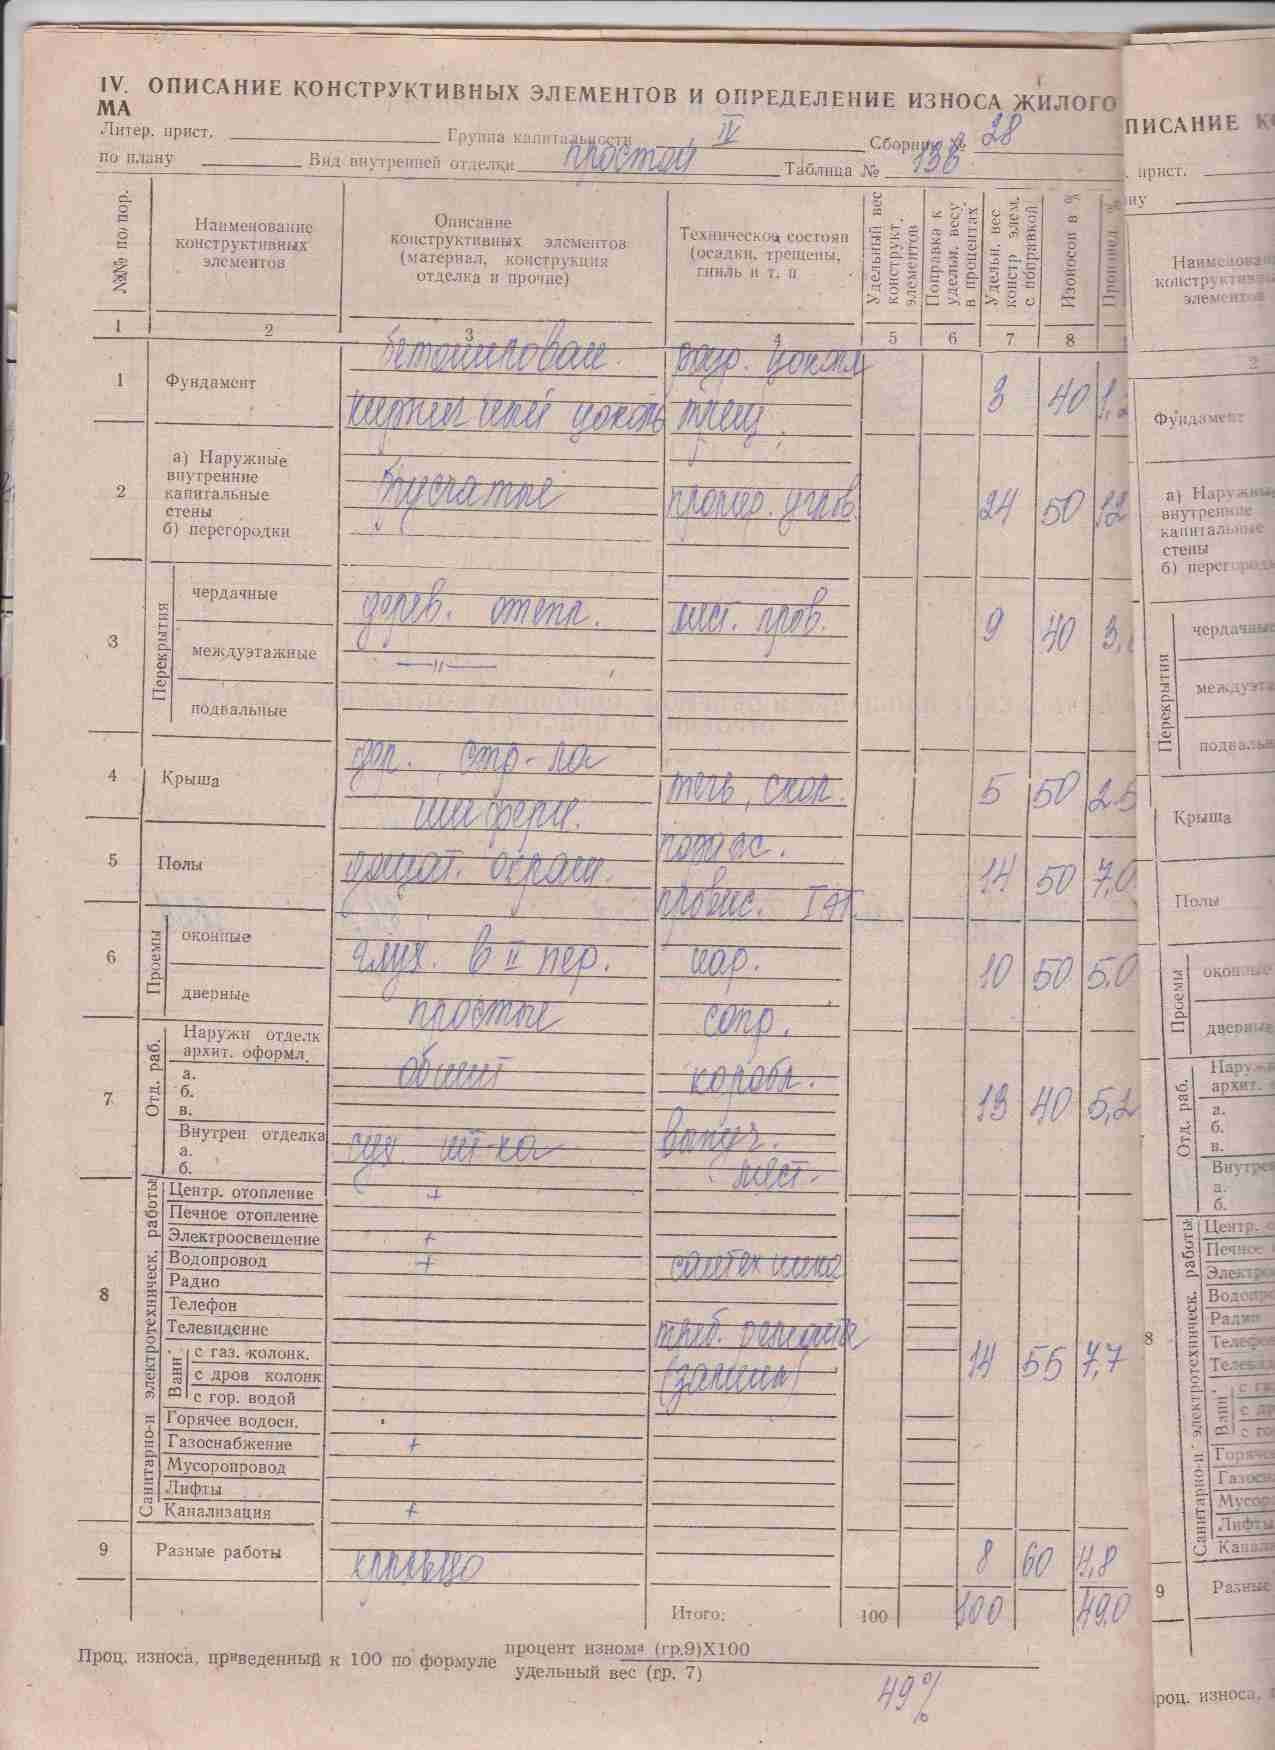 IV. ОПИСАНИЕ КОНСТРУКТИВНЫХ ЭЛЕМЕНТОВ И ОПРЕДЕЛЕНИЕ ИЗНОСА ЖИЛОГО
МА
Литер. прист. Группа капитальности IV Сборник № 28
по плану Вид внутренней отделки простой Таблица № 136
№№ по пор.
Наименование конструктивных элементов
Описание конструктивных элементов (материал, конструкция отделка и прочие)
Техническое состоян (осадки, трещены, гниль и т. п
Удельный вес конструкт. элементов
Поправка к удельн. весу в процентах
Удельн. вес констр элем. с поправкой
Изоносов в %
1 2 3 4 5 6 7 8
1 Фундамент бетонирован. 3 40
кирпичный цоколь трещ.
2 а) Наружные
внутренние
капитальные
стены
б) перегородки
брусчатые 24 50 12
3 Перекрытия
чердачные дерев. отепл. 9 40 3,
междуэтажные —"—
подвальные
4 Крыша дер. стр-ла течь, скол. 5 50 2,5
шиферн.
5 Полы дощат. окраш. 14 50 7,0
6 Проемы
оконные II пер. 10 50 5,0
дверные простые
7 Отд. раб.
Наружн отделк
архит. оформл.
а.
б.
в.
обшит 13 40 5,2
Внутрен отделка
а.
б.
сух. шт-ка выпуч.
мест.
8 Санитарно-и электротехническ. работы
Центр. отопление +
Печное отопление
Электроосвещение +
Водопровод + сантехника
Радио
Телефон
Телевидение треб.
Ванн с газ. колонк. 14 55 7,7
с дров колонк
с гор. водой
Горячее водосн.
Газоснабжение +
Мусоропровод
Лифты
Канализация +
9 Разные работы крыльцо 8 60 4,8
Итого: 100 100 49,0
Проц. износа, приведенный к 100 по формуле процент износа (гр.9)Х100
удельный вес (гр. 7)
49%
ПИСАНИЕ
прист.
ну
2
Фундамент
а) Наружны
внутренние
капитальные
стены
б) перегород
Перекрытия
чердачные
междуэта
подвальн
Крыша
Полы
Проемы
оконные
дверные
Отд. раб.
архит.
а.
б.
в.
Внутре
а.
б.
8
Санитарно-и электротехническ. работы
Центр. о
Печное
Электро
Водопро
Радио
Телефо
Телеви
Ванн.
Горяче
Газосн
Мусор
Лифты
Канал
9 Разные
роц. износа,